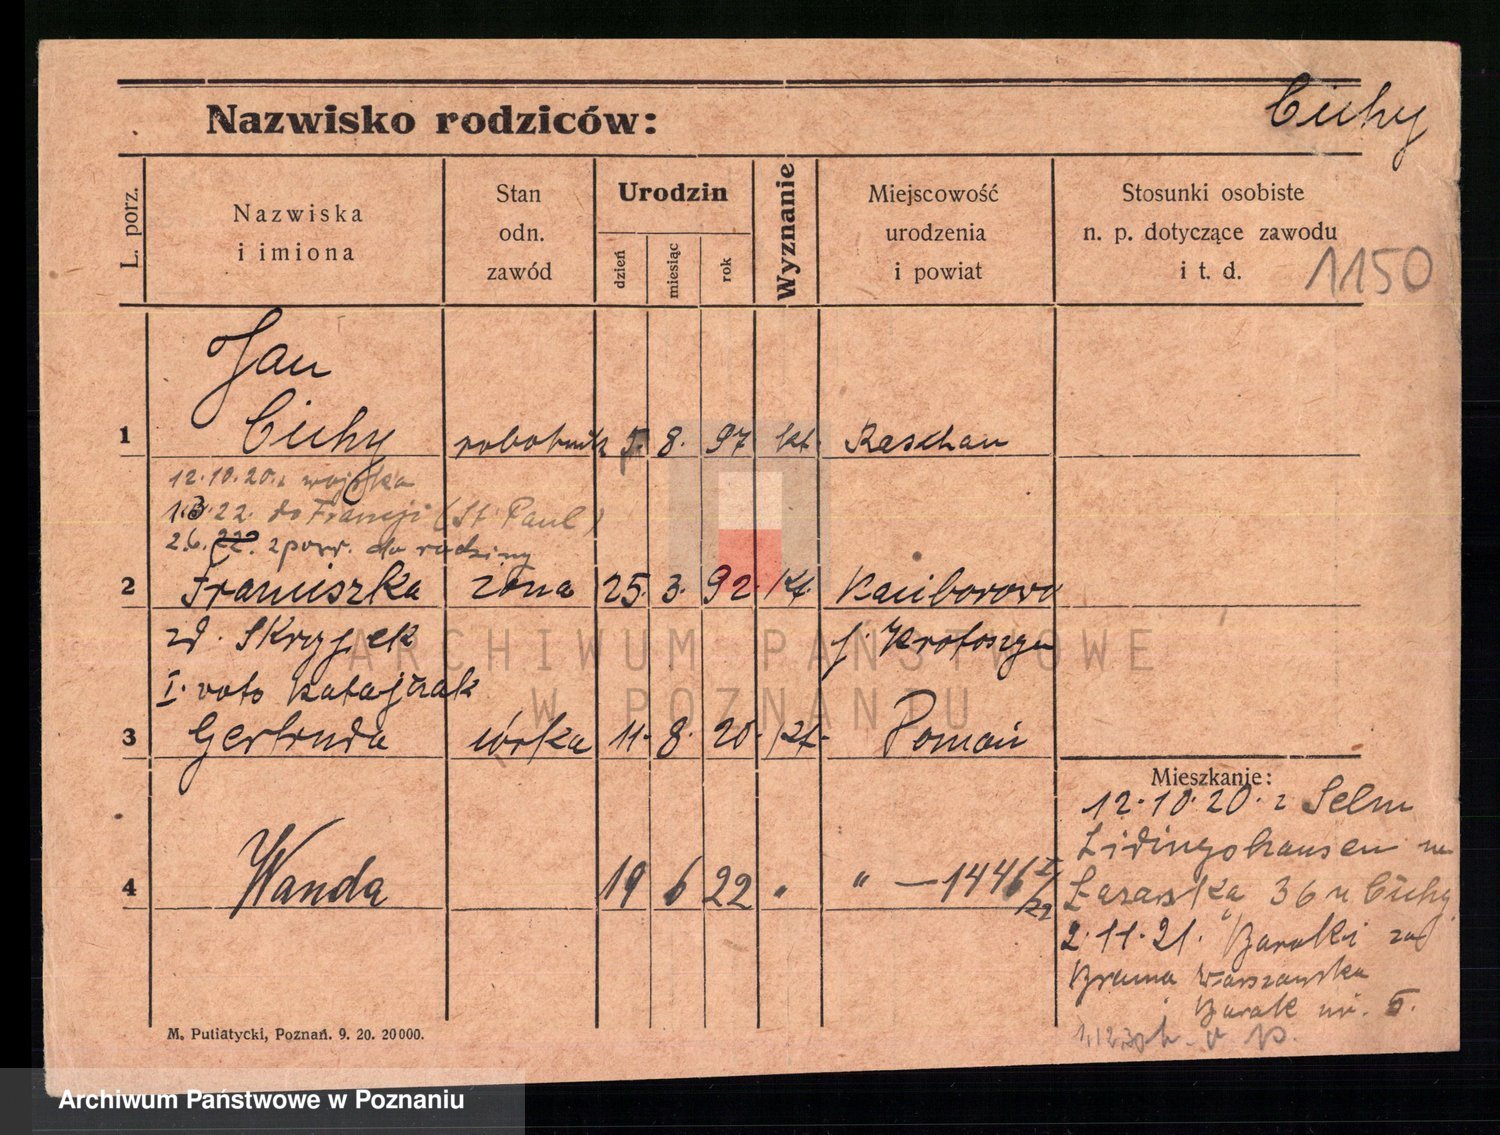 Cichy
Nazwisko rodziców:
L. porz.
Nazwiska
i imiona
Stan
odn.
zawód
Urodzin
dzień
miesiąc
rok
Wyznanie
Miejscowość
urodzenia
i powiat
Stosunki osobiste
n. p. dotyczące zawodu
i t. d.
1150
Jan
1 Cichy robotnik 5. 8. 97 kt. Raschau
12.10.20. z wojska
22 do Francji (St. Paul)
26. zpow. do rodziny
2 Franciszka żona 25. 3. 92. kt.
zd. Skrzypek Krotoszyn
I. voto Ratajczak
3 Gertruda córka 11. 8. 20. kt. Poznań
Mieszkanie:
12.10.20. z Selm
Lidingshausen
4 Wanda 19 6 22 " " — 1446
Łazarska 36 u Cichy
2.11.21. Baraki za
Brama Warszawska
Barak nr.
M. Putiatycki, Poznań. 9. 20. 20000.
ARCHIWUM PAŃSTWOWE
W POZNANIU
Archiwum Państwowe w Poznaniu